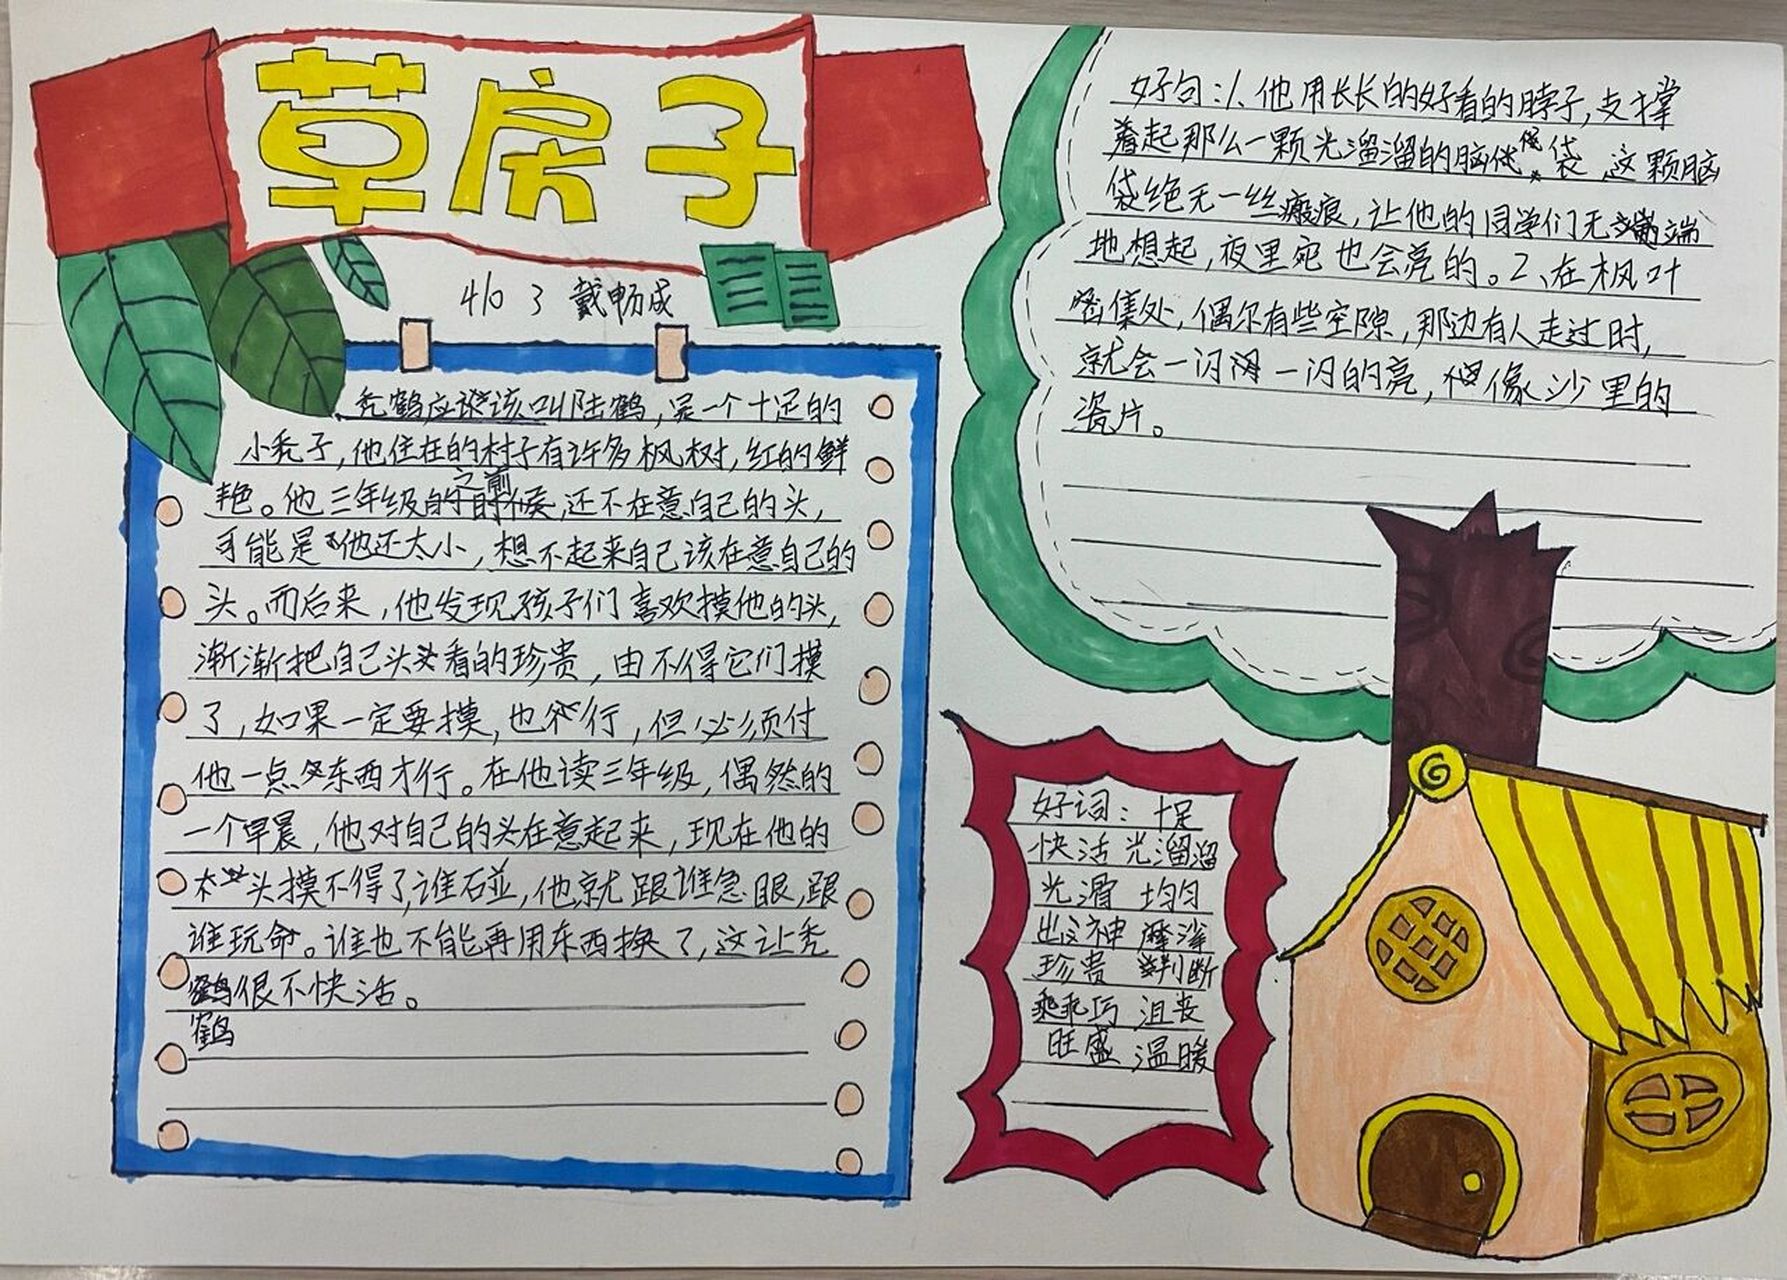 草房子
410 3 戴畅成
秃鹤应该叫陆鹤,是一个十足的
小秃子,他住在的村子有许多枫树,红的鲜
艳。他三年级之前,还不在意自己的头,
可能是他还太小,想不起来自己该在意自己的
头。而后来,他发现孩子们喜欢摸他的头,
渐渐把自己头看的珍贵,由不得它们摸
了,如果一定要摸,也行,但必须付
他一点东西才行。在他读三年级,偶然的
一个早晨,他对自己的头在意起来,现在他的
头摸不得了,谁碰,他就跟谁急眼,跟
谁玩命。谁也不能再用东西换了,这让秃
鹤很不快活。
鹤
好句:1、他用长长的好看的脖子,支撑
着起那么一颗光溜溜的脑袋,这颗脑
袋绝无一丝瘢痕,让他的同学们无端端
地想起,夜里宛也会亮的。2、在枫叶
密集处,偶尔有些空隙,那边有人走过时,
就会一闪一闪的亮,像沙里的
瓷片。
好词:十足
快活 光溜溜
光滑 均匀
出神 摩挲
珍贵 判断
乖巧 沮丧
旺盛 温暖